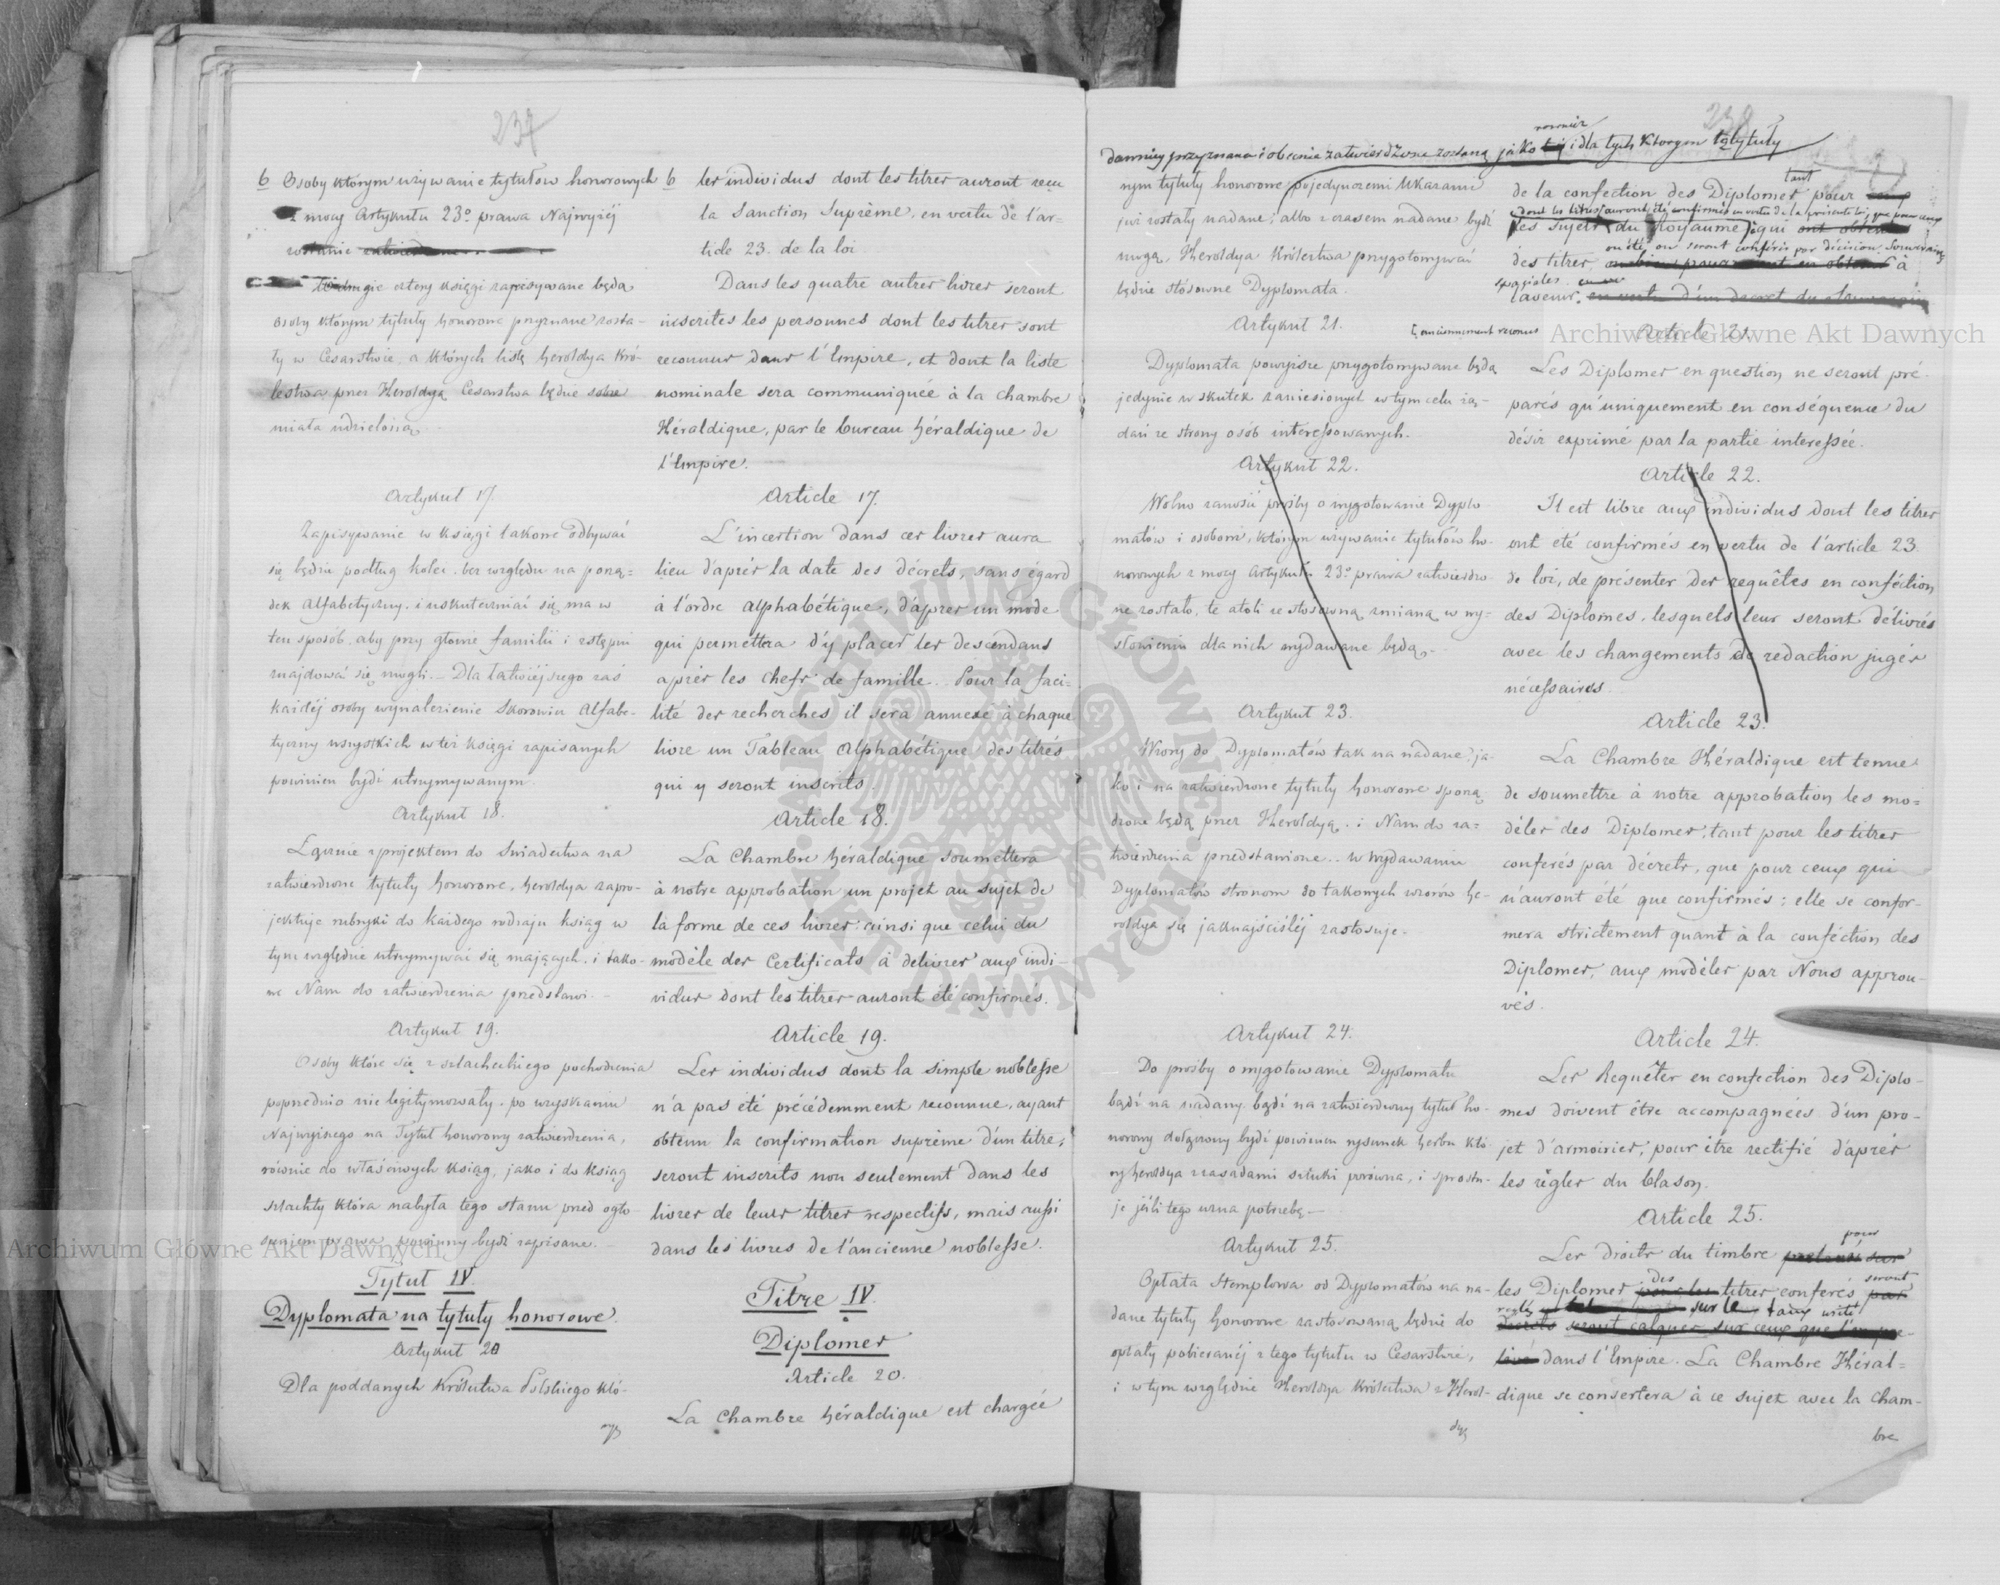 237
6 Osoby którym używanie tytułów honorowych
z mocy Artykułu 23º prawa Najwyżéj
zostanie
drugie cztery księgi zapisywane będą
osoby którym tytuły honorowe przyznane zosta-
ły w Cesarstwie, a których listę heroldya Kró-
lestwa przez Heroldyą Cesarstwa będzie sobie
miała udzieloną
Artykuł 17.
Zapisywanie w księgi takowe odbywać
się będzie podług kolei, bez względu na porzą=
dek alfabetyczny, i uskuteczniać się ma w
ten sposób, aby przy głowie familii i zstępni
znajdować się mogli. Dla łatwiéjszego zaś
każdéj osoby wynalezienia Skorowidz Alfabe-
tyczny wszystkich w też księgi zapisanych
powinien bydź utrzymywanym.
Artykuł 18.
Łącznie z projektem do Świadectwa na
zatwierdzone tytuły honorowe, heroldya zapro-
jektuje rubryki do każdego rodzaju ksiąg w
tym względzie utrzymywać się mających, i tako-
we Nam do zatwierdzenia przedstawi.
Artykuł 19.
Osoby które się z szlacheckiego pochodzenia
poprzednio nie legitymowały, po uzyskaniu
Najwyższego na Tytuł honorowy zatwierdzenia,
równie do właściwych ksiąg, jako i do ksiąg
szlachty która nabyła tego stanu przed ogło-
szeniem prawa, powinny bydź zapisane.
Tytuł IV.
Dyplomata na tytuły honorowe.
Artykuł 20
Dla poddanych Królestwa Polskiego któ-
rych
6 les individus dont les titres auront reçu
la Sanction Suprème, en vertu de l'ar-
ticle 23. de la loi
Dans les quatre autres livres seront
inscrites les personnes dont les titres sont
reconnus dans l'Empire, et dont la liste
nominale sera communiquée à la chambre
Héraldique, par le bureau héraldique de
l'Empire.
Article 17.
L'incertion dans ces livres aura
lieu d'après la date des décrets, sans égard
à l'ordre alphabétique, d'après un mode
qui permettra d'y placer les descendans
après les chefs de famille. Pour la faci=
lité des recherches il sera annexé à chaque
livre un Tableau alphabétique des titrés
qui y seront inscrits.
Article 18.
La Chambre héraldique soumettera
à notre approbation un projet au sujet de
la forme de ces livres ainsi que celui du
modèle des Certificats à delivrer aux indi-
vidus dont les titres auront été confirmés.
Article 19.
Les individus dont la simple noblesse
n'a pas été précédemment reconnue, ayant
obtenu la confirmation suprème d'un titre,
seront inscrits non seulement dans les
livres de leurs titres respectifs, mais aussi
dans les livres de l'ancienne noblesse.
Titre IV.
Diplomes
Article 20.
La Chambre héraldique est chargée
238
również
dawniéj przyznane i obecnie zatwierdzone zostaną jako i dla tych którym tytuły
nym tytuły honorowe pojedynczemi Ukazami
już zostały nadane, albo z czasem nadane bydź
mogą, Heroldya Królestwa przygotowywać
będzie stósowne Dyplomata.
Artykuł 21.
Dyplomata powyższe przygotowywane będą
jedynie w skutek zaniesionych w tym celu żą-
dań ze strony osób interessowanych.
Artykuł 22.
Wolno zanosić prośby o wygotowanie Dyplo
matów i osobom, którym używanie tytułów ho-
norowych z mocy Artykułu 23º prawa zatwierdzo-
ne zostało, te atoli ze stosowną zmianą w wy=
słowieniu dla nich wydawane będą.
Artykuł 23.
Wzory do Dyplomatów tak na nadane ja-
ko i na zatwierdzone tytuły honorowe sporzą
dzone będą przez Heroldyą, i Nam do za-
twierdzenia przedstawione. w wydawaniu
Dyplomatów stronom do takowych wzorów he-
roldya się jaknajściśléj zastosuje.
Artykuł 24.
Do prośby o wygotowanie Dyplomatu
bądź na nadany, bądź na zatwierdzony tytuł ho-
norowy dołączony bydź powinien rysunek herbu któ
ry heroldya z zasadami sztuki porówna, i sprostu-
je jeżli tego uzna potrzebę.
Artykuł 25.
Opłata stemplowa od Dyplomatów na na-
dane tytuły honorowe zastosowaną będzie do
opłaty pobieranéj z tego tytułu w Cesarstwie,
i w tym względzie Heroldya Królestwa z Herol-
dyą
tant
de la confection des Diplomes pour
dont les titres auront été confirmés en vertu de la présente loi, que pour ceux
les sujets du Royaume, qui ont obtenus
ont été, ou seront conférés par décision Souveraine
des titres à
spéciales.
l'avenir, en vertu d'un decret du Souverain
anciennement reconus
Article 21.
Les Diplomes en question ne seront pré-
parés qu'uniquement en conséquence du
désir exprimé par la partie interessée.
Article 22.
Il est libre aux individus dont les titres
ont été confirmés en vertu de l'article 23
de loi, de présenter des requêtes en conféction
des Diplomes, lesquels leur seront délivrés
avec les changements de redaction jugés
nécessaires.
Article 23.
La Chambre Héraldique est tenue
de soumettre à notre approbation les mo=
dèles des Diplomes, tant pour les titres
conferés par décrets, que pour ceux qui
n'auront été que confirmés; elle se confor-
mera strictement quant à la conféction des
Diplomes, aux modèles par Nous approu-
vés.
Article 24.
Les Requêtes en confection des Diplo-
mes doivent être accompagnées d'un pro-
jet d'armoiries, pour être rectifié d'après
les règles du blason.
Article 25.
pour
Les droits du timbre
des seront
les Diplomes titres conferés par
sur le taux usité
décrets seront calqués sur ceux que l'on pré-
levé dans l'Empire. La Chambre Héral=
dique se consertera à ce sujet avec la Cham-
bre
Archiwum Główne Akt Dawnych
Archiwum Główne Akt Dawnych
ARCHIWUM GŁÓWNE AKT DAWNYCH